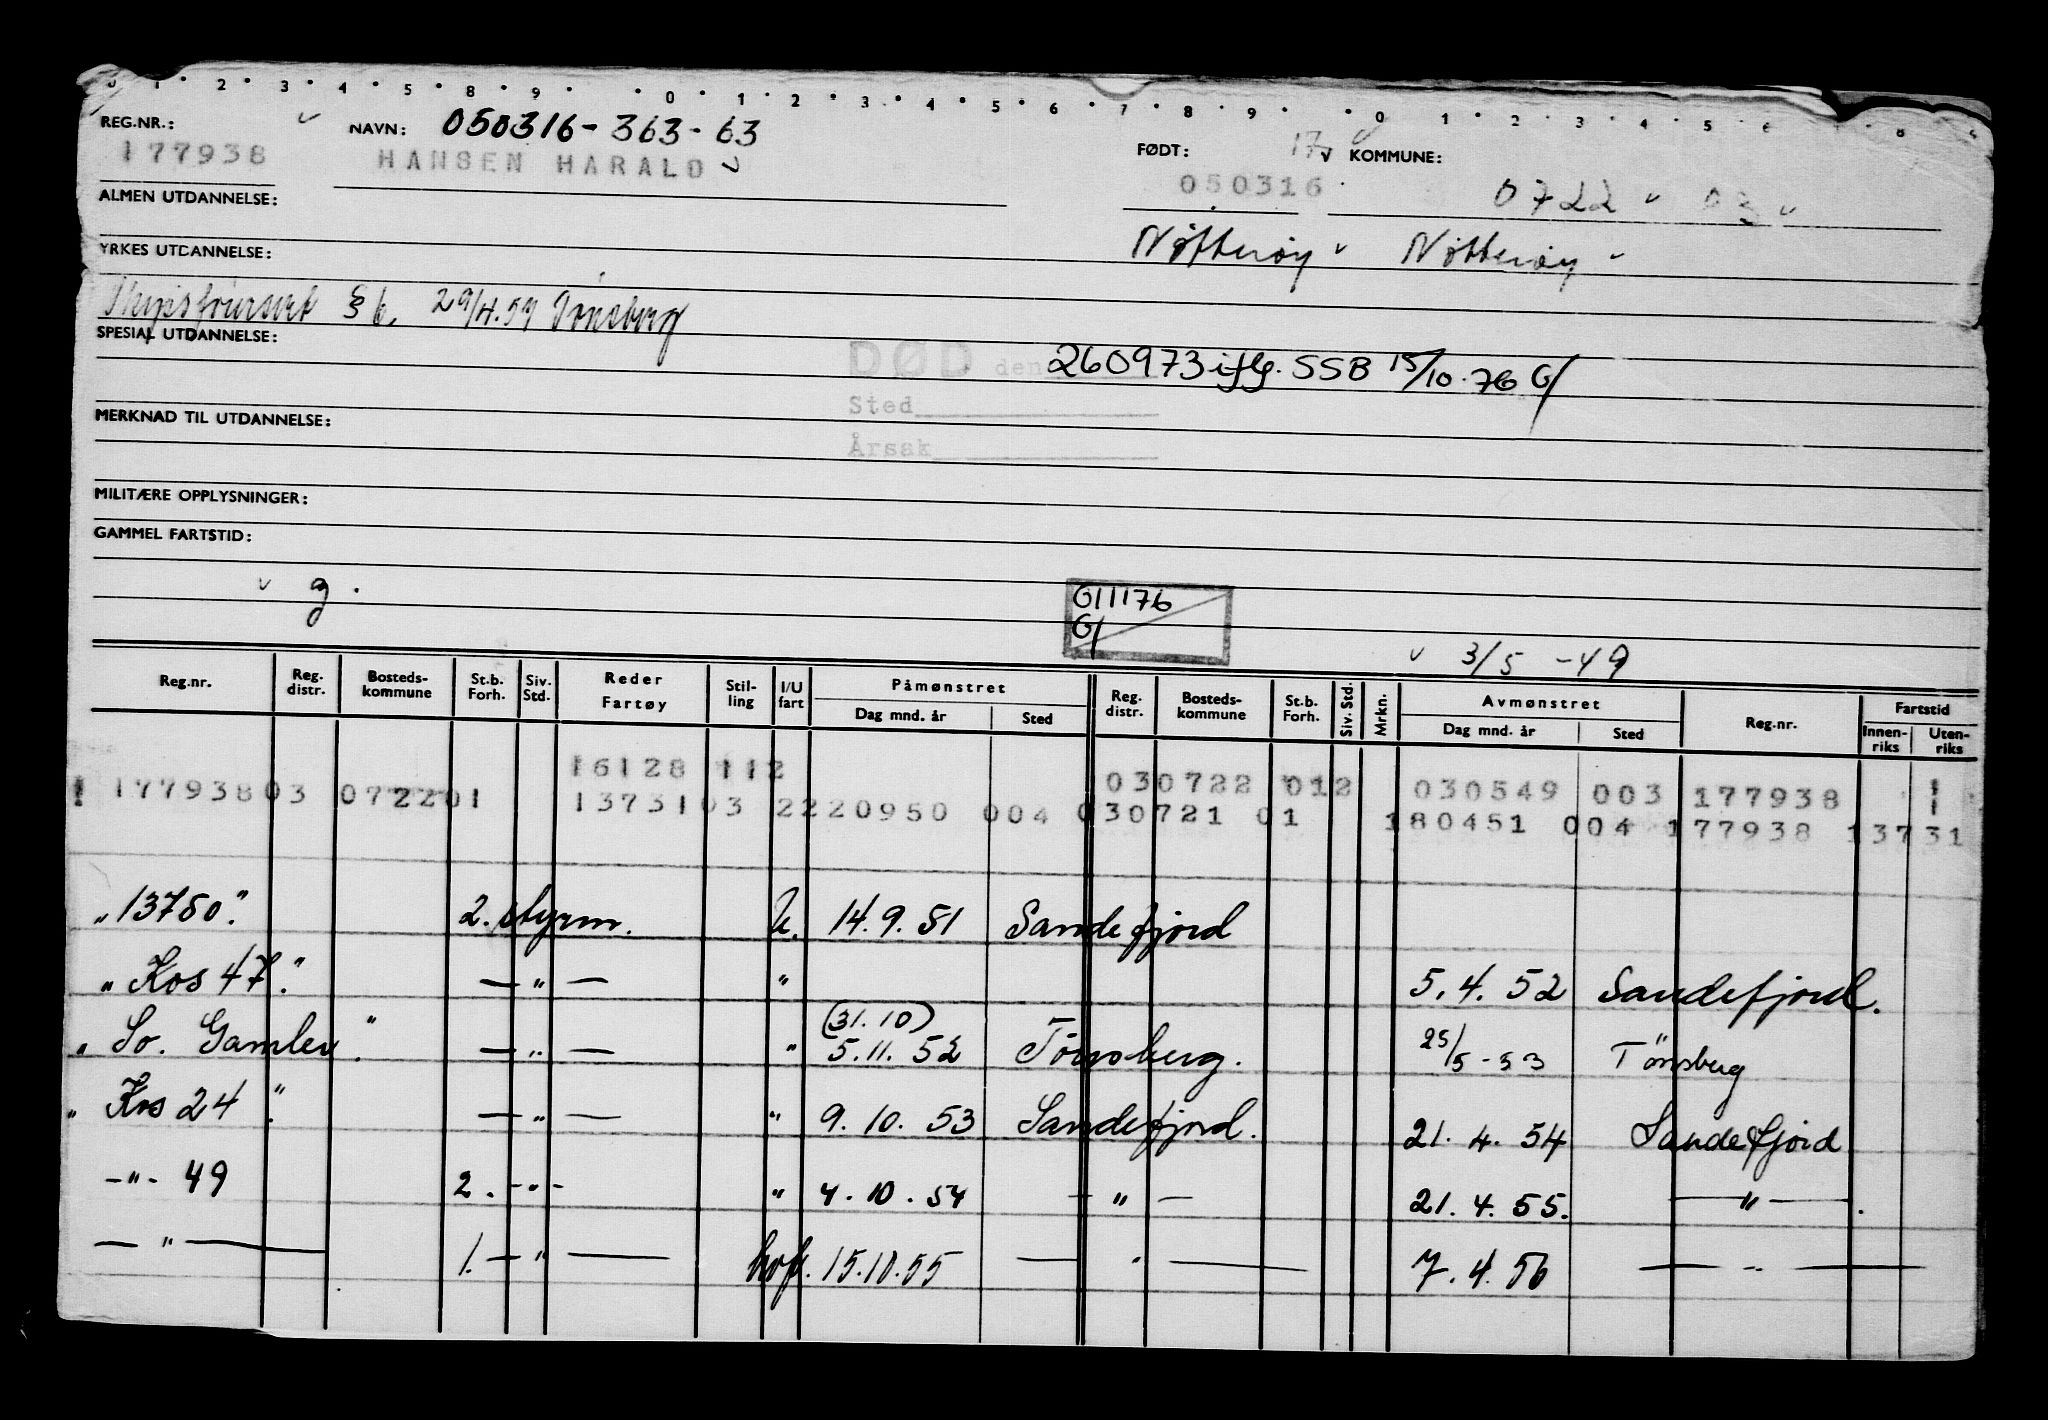 0 1 2 3 4 5 8 9 0 1 2 3 4 5 6 7 8 9 0 1 2 3 4 5 6
REG.NR.: NAVN: 050316-363-63 FØDT: 17 KOMMUNE:
177938 HANSEN HARALD 050316 0722
ALMEN UTDANNELSE:
YRKES UTDANNELSE: Nøtterøy Nøtterøy
§ 6, 29/4.59 Tønsberg
SPESIAL UTDANNELSE:
DØD den 260973 iflg. SSB 15/10.76 G/
Sted
MERKNAD TIL UTDANNELSE:
Årsak
MILITÆRE OPPLYSNINGER:
GAMMEL FARTSTID:
g.
G11176
G/
3/5 -49
Reg.nr. Reg. distr. Bosteds-kommune St.b. Forh. Siv. Std. Reder Fartøy Stil-ling I/U fart Påmønstret Dag mnd. år Sted Reg. distr. Bosteds-kommune St.b. Forh. Siv. Std. Mrkn. Avmønstret Dag mnd. år Sted Reg.nr. Fartstid Innen-riks Uten-riks
16128 112 030722 012 030549 003 177938 1
177938 03 0722 01 13731 03 2 220950 004 030721 01 180451 004 177938 13731
"13750". 2. styrm. U. 14.9.51 Sandefjord
"Kos 47". — " — " 5.4.52 Sandefjord.
(31.10)
" So. Gamlen". — " — " 5.11.52 Tønsberg. 25/5-53 Tønsberg
" Kos 24". — " — " 9.10.53 Sandefjord. 21.4.54 Sandefjord
-"- 49 2. -"- " 4.10.54 — " — 21.4.55. — " —.
— " — 1. — " — hvf. 15.10.55 — " — 7.4.56 — " —